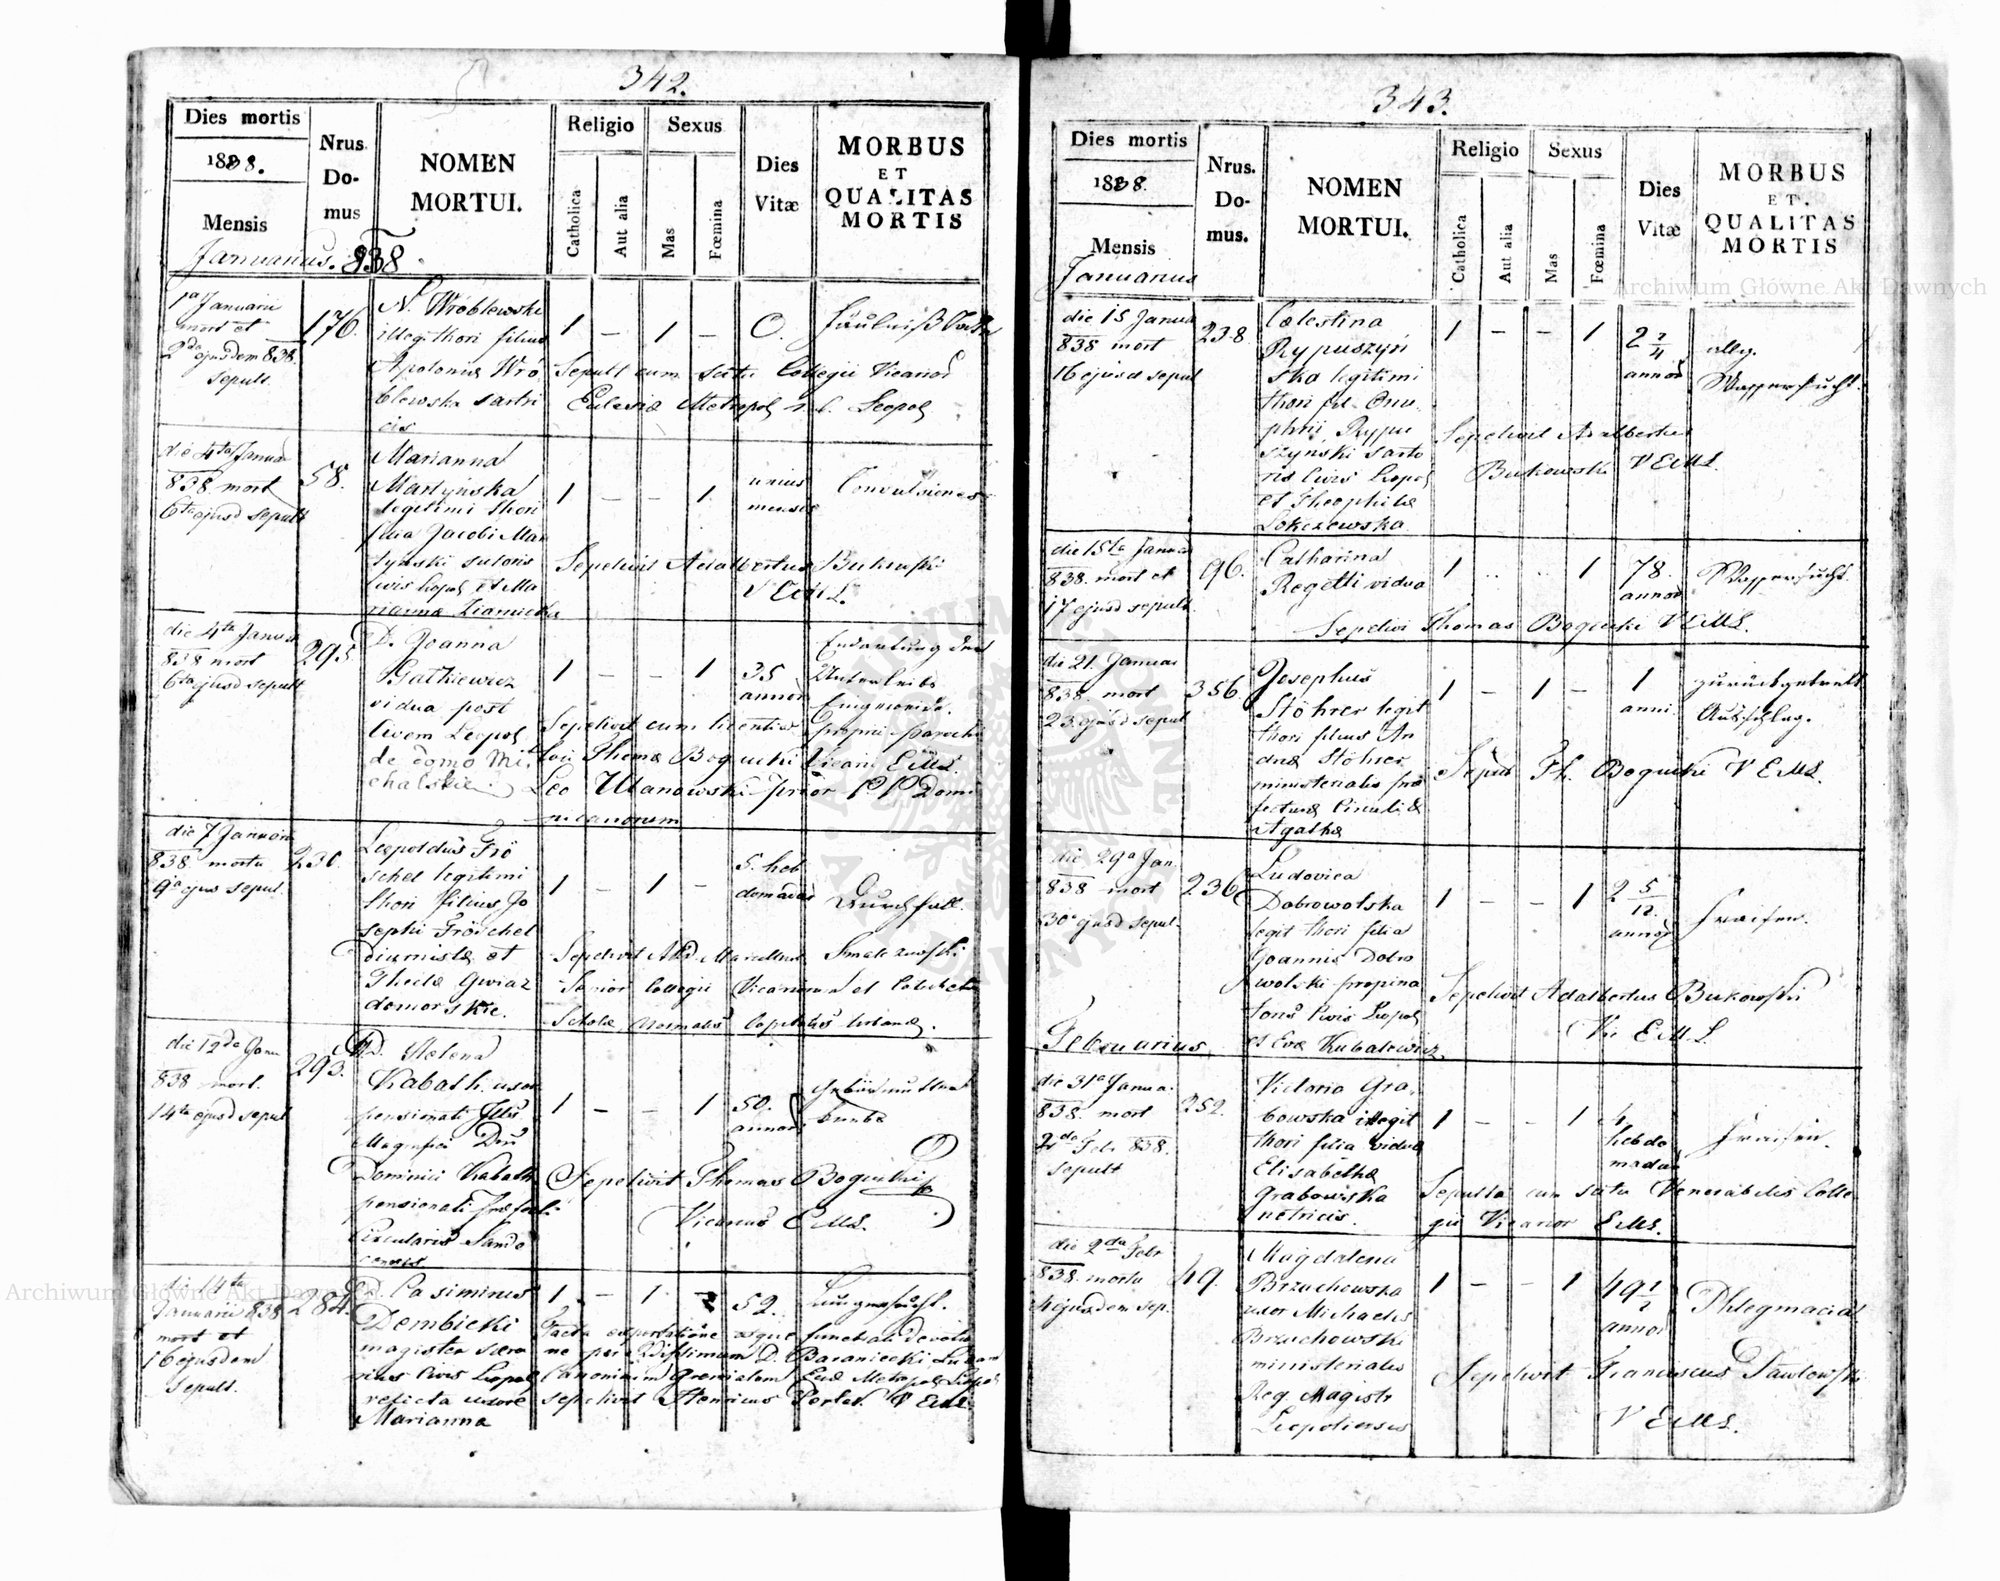 342.
Dies mortis
1838.
Mensis
Januarius. 838
Nrus
Do-
mus
NOMEN
MORTUI.
Religio
Catholica
Aut alia
Sexus
Mas
Fœmina
Dies
Vitæ
MORBUS
ET
QUALITAS
MORTIS
1a Januarii
mort et
2da ejusdem 838.
Sepult.
176.
N. Wróblewski
illegithori filius
Apolonia Wró
blewska sartri
cis
1 – 1 –
0.
Sepult cum scitu Collegii Vicarior
Eclesiæ Metropol r. l. Leopol
die 4ta Januar
838 mort
6ta ejusd sepult
58.
Marianna
Martynska
legitimi thori
filia Jacobi Mar
tynski sutoris
Civis Leopol et Ma
rianna
1 – – 1
unius
mensis
Convulsiones
Sepelivit Adalbertus Bukowski
V E M L.
die 4ta Januar
838 mort
6ta ejusd sepult
295
D. Joanna
vidua post
Civem Leopol
de domo Mi
chalskie
1 – – 1
35
annor
Entartung der
Unterleibs
Eingeweide.
Sepelivit cum licentia proprii parochi
loci Thoma Bogucki Vicarii E M L.
Leo Ulanowski prior P. P. Domi
nicanorum
die 7 Januar
838 mortu
9a ejus sepul.
230.
Leopoldus Frö
schel legitimi
thori filius Jo
sephi Fröschel
diurnistæ et
Theclæ Gwiaz
domorskie.
1 – 1 –
5. heb
domadar
Durchfall.
Sepelivit Marcellus
Senior Collegii Vicariorum et Catecheta
Scholæ normalis Capitalis urbanæ.
die 12da Janu
838 mort.
14ta ejusd sepul
293.
Helena
Kabath uxor
pensionati
Magnifici Dni
Dominici Kabath
pensionati
Circularis Sando
censis
1 – – 1
50.
annor
Gebärmutter
Sepelivit Thomas Bogucki
Vicarius E M L.
die 14ta
Januarii 838
mort et
16 ejusdem
Sepult.
284.
D. Casimirus
Dembicki
magister
Civis Leopol
relicta uxore
Marianna
1 – 1 –
52.
Lungensucht.
Facta exportatione atque functione
ne per D. Baraniecki
Canonicum Gremialem Metropol Leopol
sepelivit Henricus V E M L
343.
Dies mortis
1838.
Mensis
Januarius
Nrus.
Do-
mus.
NOMEN
MORTUI.
Religio
Catholica
Aut alia
Sexus
Mas
Fœmina
Dies
Vitæ
MORBUS
ET.
QUALITAS
MORTIS
die 15 Janua
838 mort
16 ejusd sepul
238
Cælestina
Rypuszyń
ska legitimi
thori fil. Onu
phrii Rypu
szynski sarto
ris Civis Leopol
et Theophilæ
1 – – 1
2 3/4
annor
allg.
Wassersucht.
Sepelivit Adalbertus
Bukowski V E M L.
die 15ta Januar
838. mort et
17 ejusd sepult
196.
Catharina
Regetti vidua
1 .. .. 1
78.
annor
Wassersucht.
Sepelivi Thomas Bogucki V E M L.
die 21. Januar
838. mort
23. ejusd sepul
356
Josephus
Stöhrer legit
thori filius An
dreæ Stöhrer
ministerialis præ
fecturæ
Agathæ
1 – 1 –
1
anni.
zurückgetrett
Ausschlag.
Sepel Th. Bogucki V E M L.
die 29a Jan.
838 mort
30a ejusd sepul.
236
Ludovica
Dobrowolska
legit thori filia
Joannis Dobro
wolski propina
toris Civis Leopol
et Evæ Kubalewicz
1 – – 1
2 5/12.
annor
Fraisen.
Sepelivit Adalbertus Bukowski
Vic E M L
Februarius.
die 31a Janua.
838. mort
2da Febr 838.
sepult
252.
Victoria Gra
bowska illegit
thori filia viduæ
Elisabethæ
Grabowska
1 – – 1
4
hebdo
madar
Fraisen.
Sepulta cum scitu Venerabilis Colle
gii Vicarior E M L.
die 2da Febr
838. mortu
4 ejusdem sep.
49.
Magdalena
Brzuchowska
uxor Michaelis
Brzuchowski
ministerialis
Reg Magistr
Leopoliensis
1 – – 1
49 1/2
annor
Sepelivit Franciscus Pawlowski
V E M L.
Archiwum Główne Akt Dawnych
Archiwum Główne Akt Dawnych